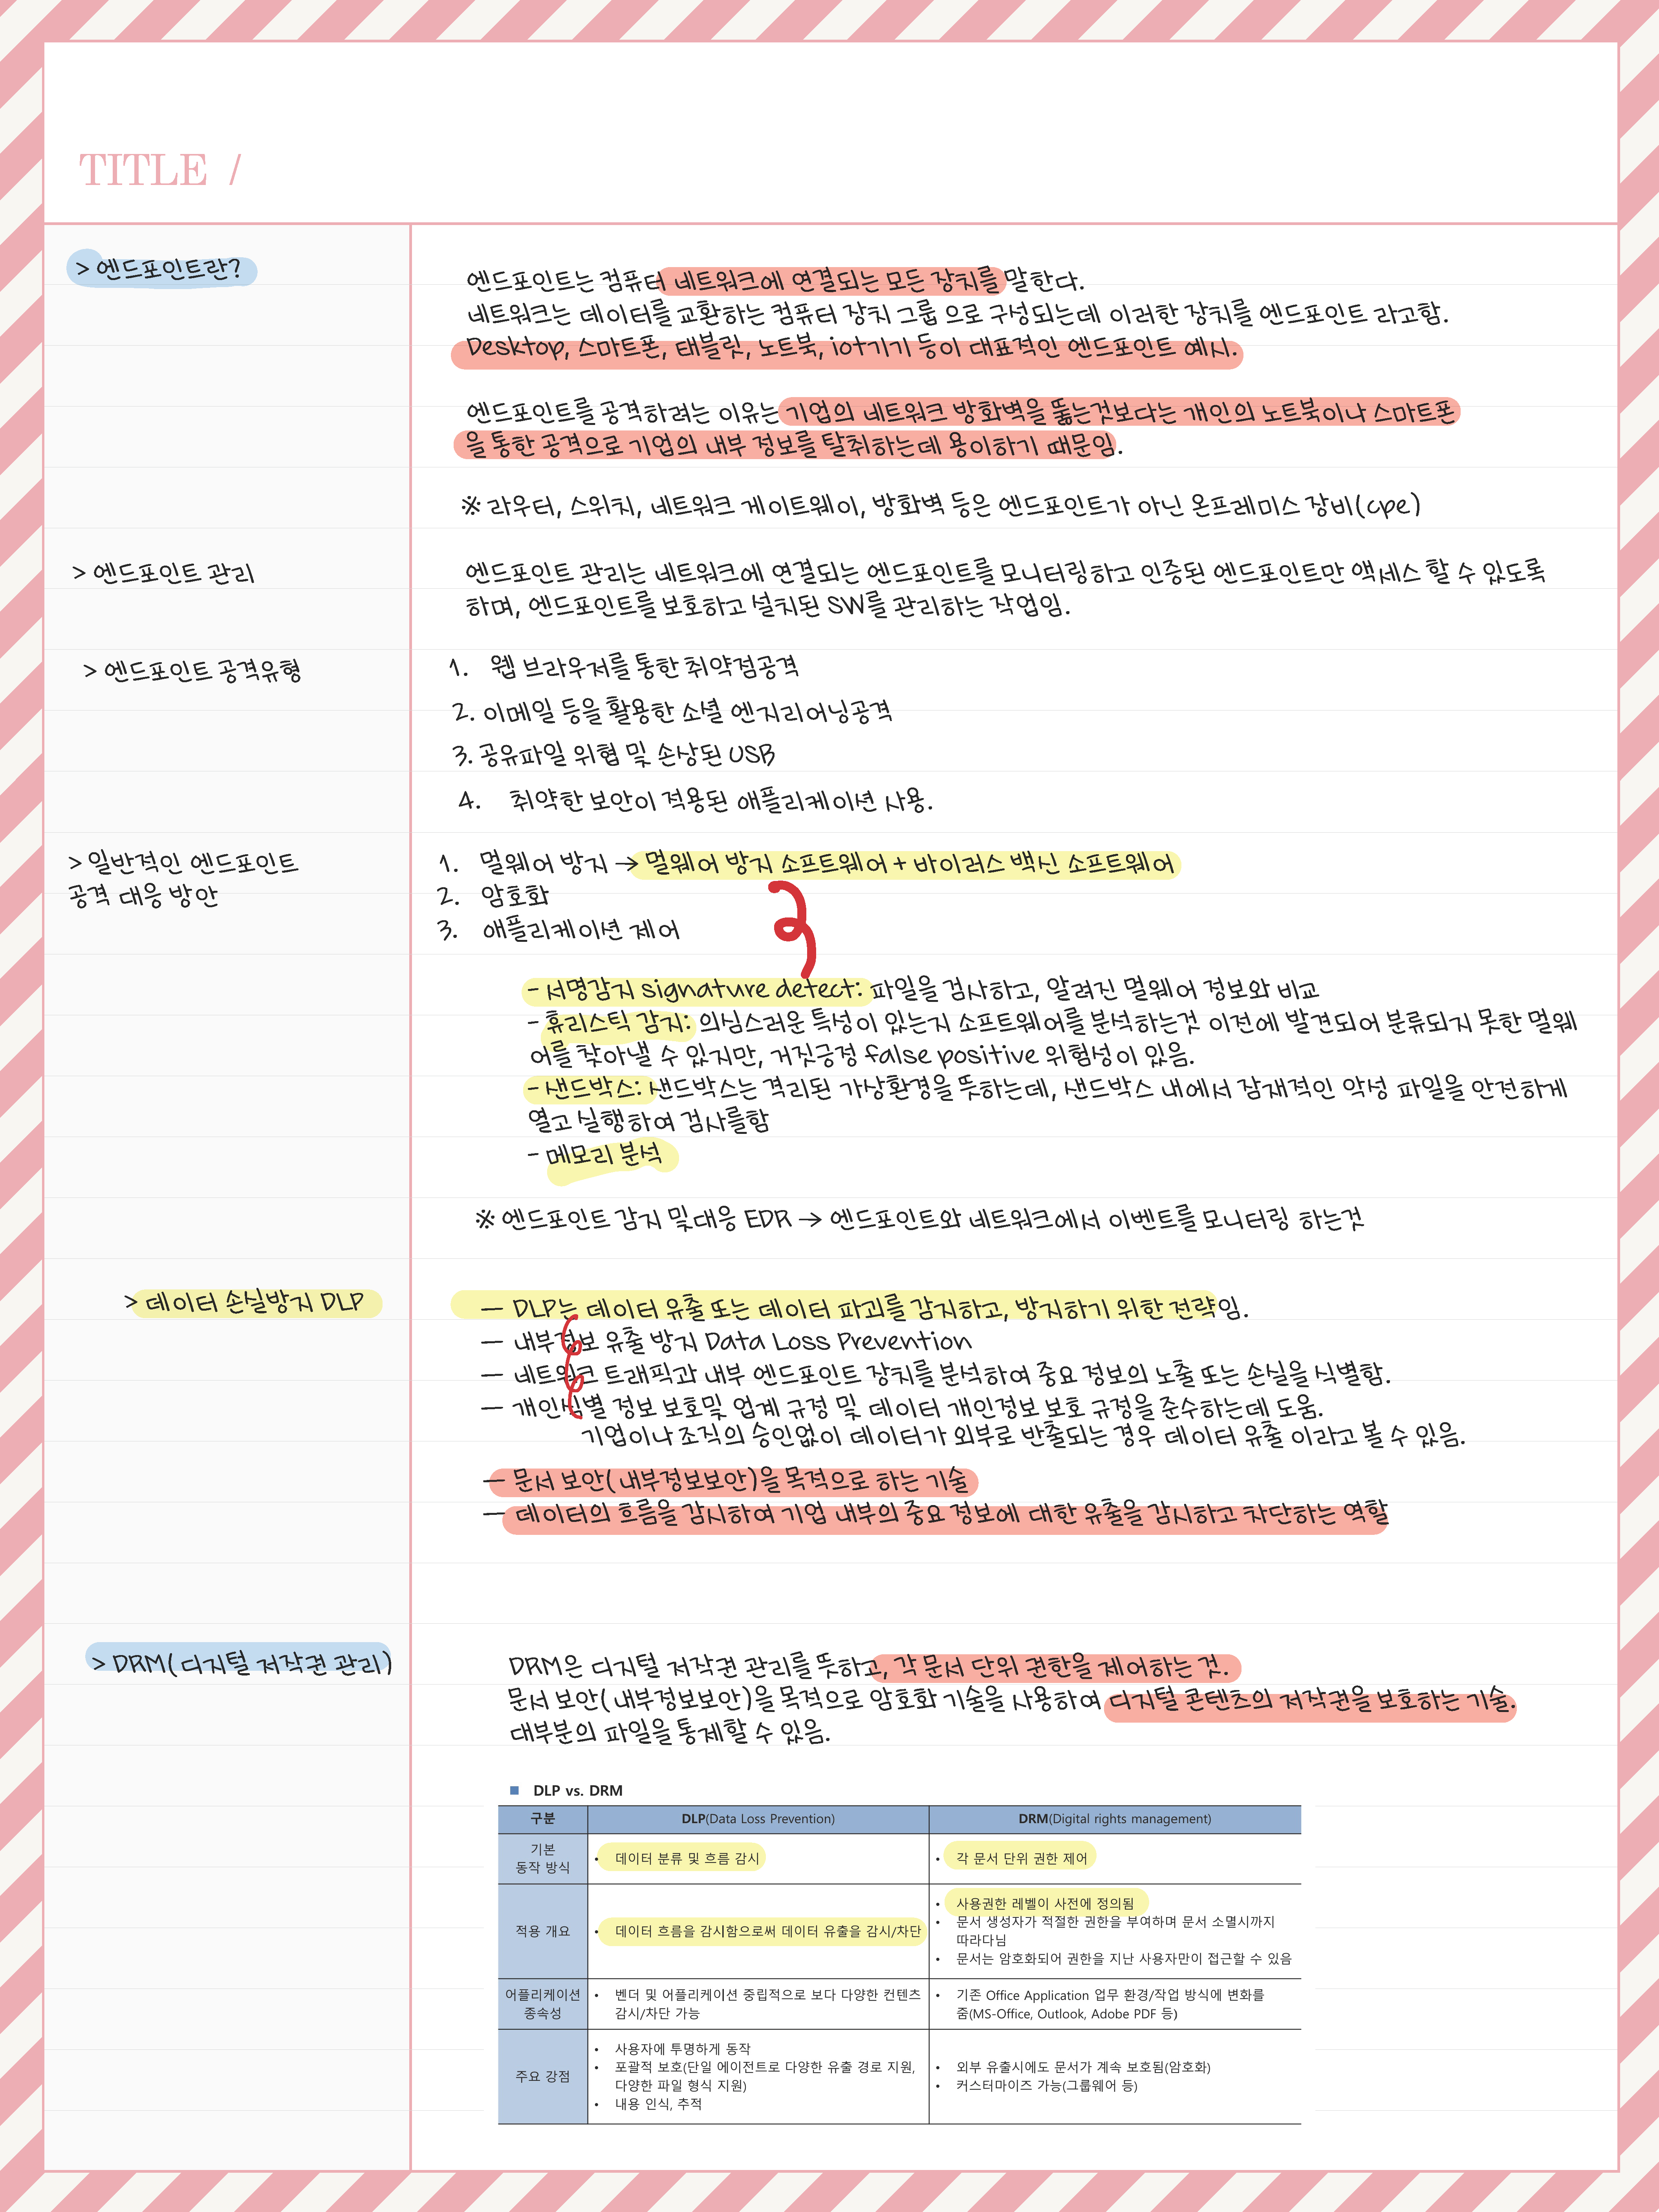 TITLE /
> 엔드포인트란?
엔드포인트는 컴퓨터 네트워크에 연결되는 모든 장치를 말한다.
네트워크는 데이터를 교환하는 컴퓨터 장치 그룹 으로 구성되는데 이러한 장치를 엔드포인트 라고함.
Desktop, 스마트폰, 태블릿, 노트북, iot기기 등이 대표적인 엔드포인트 예시.
엔드포인트를 공격하려는 이유는 기업의 네트워크 방화벽을 뚫는것보다는 개인의 노트북이나 스마트폰
을 통한 공격으로 기업의 내부 정보를 탈취하는데 용이하기 때문임.
※ 라우터, 스위치, 네트워크 게이트웨이, 방화벽 등은 엔드포인트가 아닌 온프레미스 장비(cpe)
> 엔드포인트 관리
엔드포인트 관리는 네트워크에 연결되는 엔드포인트를 모니터링하고 인증된 엔드포인트만 액세스 할 수 있도록
하며, 엔드포인트를 보호하고 설치된 SW를 관리하는 작업임.
> 엔드포인트 공격유형
1. 웹 브라우저를 통한 취약점공격
2. 이메일 등을 활용한 소셜 엔지리어닝공격
3. 공유파일 위협 및 손상된 USB
4. 취약한 보안이 적용된 애플리케이션 사용.
> 일반적인 엔드포인트
공격 대응 방안
1. 멀웨어 방지 → 멀웨어 방지 소프트웨어 + 바이러스 백신 소프트웨어
2. 암호화
3. 애플리케이션 제어
- 서명감지 signature detect: 파일을 검사하고, 알려진 멀웨어 정보와 비교
- 휴리스틱 감지: 의심스러운 특성이 있는지 소프트웨어를 분석하는것 이전에 발견되어 분류되지 못한 멀웨
어를 찾아낼 수 있지만, 거짓긍정 false positive 위험성이 있음.
- 샌드박스: 샌드박스는 격리된 가상환경을 뜻하는데, 샌드박스 내에서 잠재적인 악성 파일을 안전하게
열고 실행하여 검사를함
- 메모리 분석
※ 엔드포인트 감지 및대응 EDR → 엔드포인트와 네트워크에서 이벤트를 모니터링 하는것
> 데이터 손실방지 DLP
— DLP는 데이터 유출 또는 데이터 파괴를 감지하고, 방지하기 위한 전략임.
— 내부정보 유출 방지 Data Loss Prevention
— 네트워크 트래픽과 내부 엔드포인트 장치를 분석하여 중요 정보의 노출 또는 손실을 식별함.
— 개인식별 정보 보호및 업계 규정 및 데이터 개인정보 보호 규정을 준수하는데 도움.
기업이나 조직의 승인없이 데이터가 외부로 반출되는 경우 데이터 유출 이라고 볼 수 있음.
— 문서 보안(내부정보보안)을 목적으로 하는 기술
— 데이터의 흐름을 감시하여 기업 내부의 중요 정보에 대한 유출을 감시하고 차단하는 역할
> DRM(디지털 저작권 관리)
DRM은 디지털 저작권 관리를 뜻하고, 각 문서 단위 권한을 제어하는 것.
문서 보안(내부정보보안)을 목적으로 암호화 기술을 사용하여 디지털 콘텐츠의 저작권을 보호하는 기술.
대부분의 파일을 통제할 수 있음.
■ DLP vs. DRM
구분 DLP(Data Loss Prevention) DRM(Digital rights management)
기본
동작 방식
• 데이터 분류 및 흐름 감시
• 각 문서 단위 권한 제어
적용 개요
• 데이터 흐름을 감시함으로써 데이터 유출을 감시/차단
• 사용권한 레벨이 사전에 정의됨
• 문서 생성자가 적절한 권한을 부여하며 문서 소멸시까지
따라다님
• 문서는 암호화되어 권한을 지난 사용자만이 접근할 수 있음
어플리케이션
종속성
• 벤더 및 어플리케이션 중립적으로 보다 다양한 컨텐츠
감시/차단 가능
• 기존 Office Application 업무 환경/작업 방식에 변화를
줌(MS-Office, Outlook, Adobe PDF 등)
주요 강점
• 사용자에 투명하게 동작
• 포괄적 보호(단일 에이전트로 다양한 유출 경로 지원,
다양한 파일 형식 지원)
• 내용 인식, 추적
• 외부 유출시에도 문서가 계속 보호됨(암호화)
• 커스터마이즈 가능(그룹웨어 등)